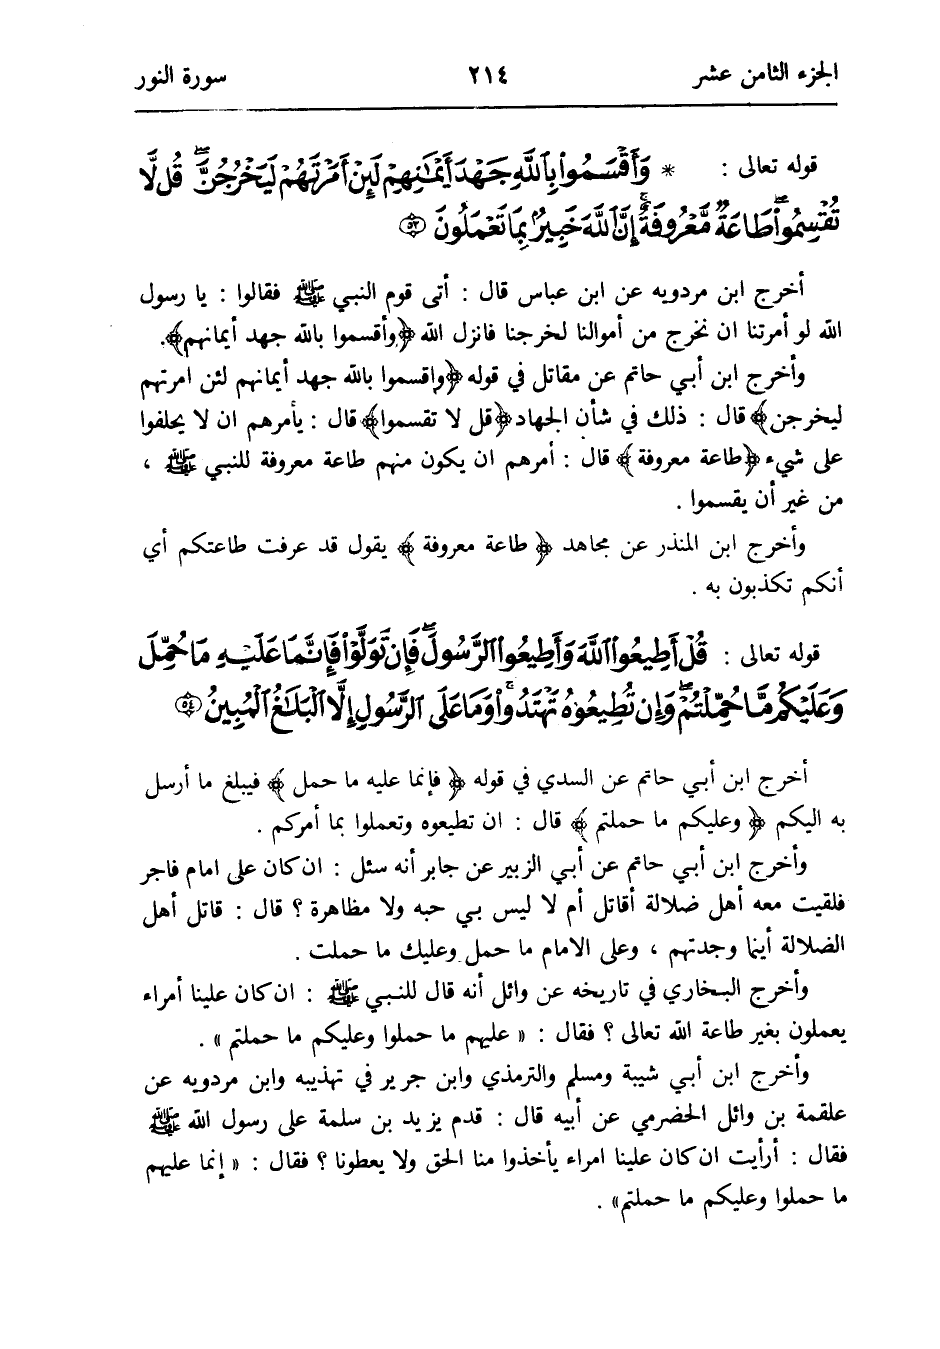 الجزء الثامن عشر ٢١٤ سورة النور
قوله تعالى : * وَأَقْسَمُوا۟ بِٱللَّهِ جَهْدَ أَيْمَٰنِهِمْ لَئِنْ أَمَرْتَهُمْ لَيَخْرُجُنَّ ۖ قُل لَّا
تُقْسِمُوا۟ ۖ طَاعَةٌ مَّعْرُوفَةٌ ۚ إِنَّ ٱللَّهَ خَبِيرٌۢ بِمَا تَعْمَلُونَ ٥٣
أخرج ابن مردويه عن ابن عباس قال : أتى قوم النبي ﷺ فقالوا : يا رسول
الله لو أمرتنا ان نخرج من أموالنا لخرجنا فانزل الله ﴿وأقسموا بالله جهد أيمانهم﴾.
وأخرج ابن أبي حاتم عن مقاتل في قوله ﴿واقسموا بالله جهد أيمانهم لئن امرتهم
ليخرجن﴾ قال : ذلك في شأن الجهاد ﴿قل لا تقسموا﴾ قال : يأمرهم ان لا يحلفوا
على شيء ﴿طاعة معروفة﴾ قال : أمرهم ان يكون منهم طاعة معروفة للنبي ﷺ ،
من غير أن يقسموا .
وأخرج ابن المنذر عن مجاهد ﴿ طاعة معروفة ﴾ يقول قد عرفت طاعتكم أي
أنكم تكذبون به .
قوله تعالى : قُلْ أَطِيعُوا۟ ٱللَّهَ وَأَطِيعُوا۟ ٱلرَّسُولَ ۖ فَإِن تَوَلَّوْا۟ فَإِنَّمَا عَلَيْهِ مَا حُمِّلَ
وَعَلَيْكُم مَّا حُمِّلْتُمْ ۖ وَإِن تُطِيعُوهُ تَهْتَدُوا۟ ۚ وَمَا عَلَى ٱلرَّسُولِ إِلَّا ٱلْبَلَٰغُ ٱلْمُبِينُ ٥٤
أخرج ابن أبي حاتم عن السدي في قوله ﴿ فإنما عليه ما حمل ﴾ فيبلغ ما أرسل
به اليكم ﴿ وعليكم ما حملتم ﴾ قال : ان تطيعوه وتعملوا بما أمركم .
وأخرج ابن أبي حاتم عن أبي الزبير عن جابر أنه سئل : ان كان على امام فاجر
فلقيت معه أهل ضلالة أقاتل أم لا ليس بي حبه ولا مظاهرة ؟ قال : قاتل أهل
الضلالة أينما وجدتهم ، وعلى الامام ما حمل وعليك ما حملت .
وأخرج البخاري في تاريخه عن وائل أنه قال للنبي ﷺ : ان كان علينا أمراء
يعملون بغير طاعة الله تعالى ؟ فقال : « عليهم ما حملوا وعليكم ما حملتم » .
وأخرج ابن أبي شيبة ومسلم والترمذي وابن جرير في تهذيبه وابن مردويه عن
علقمة بن وائل الحضرمي عن أبيه قال : قدم يزيد بن سلمة على رسول الله ﷺ
فقال : أرأيت ان كان علينا امراء يأخذوا منا الحق ولا يعطونا ؟ فقال : « إنما عليهم
ما حملوا وعليكم ما حملتم» .